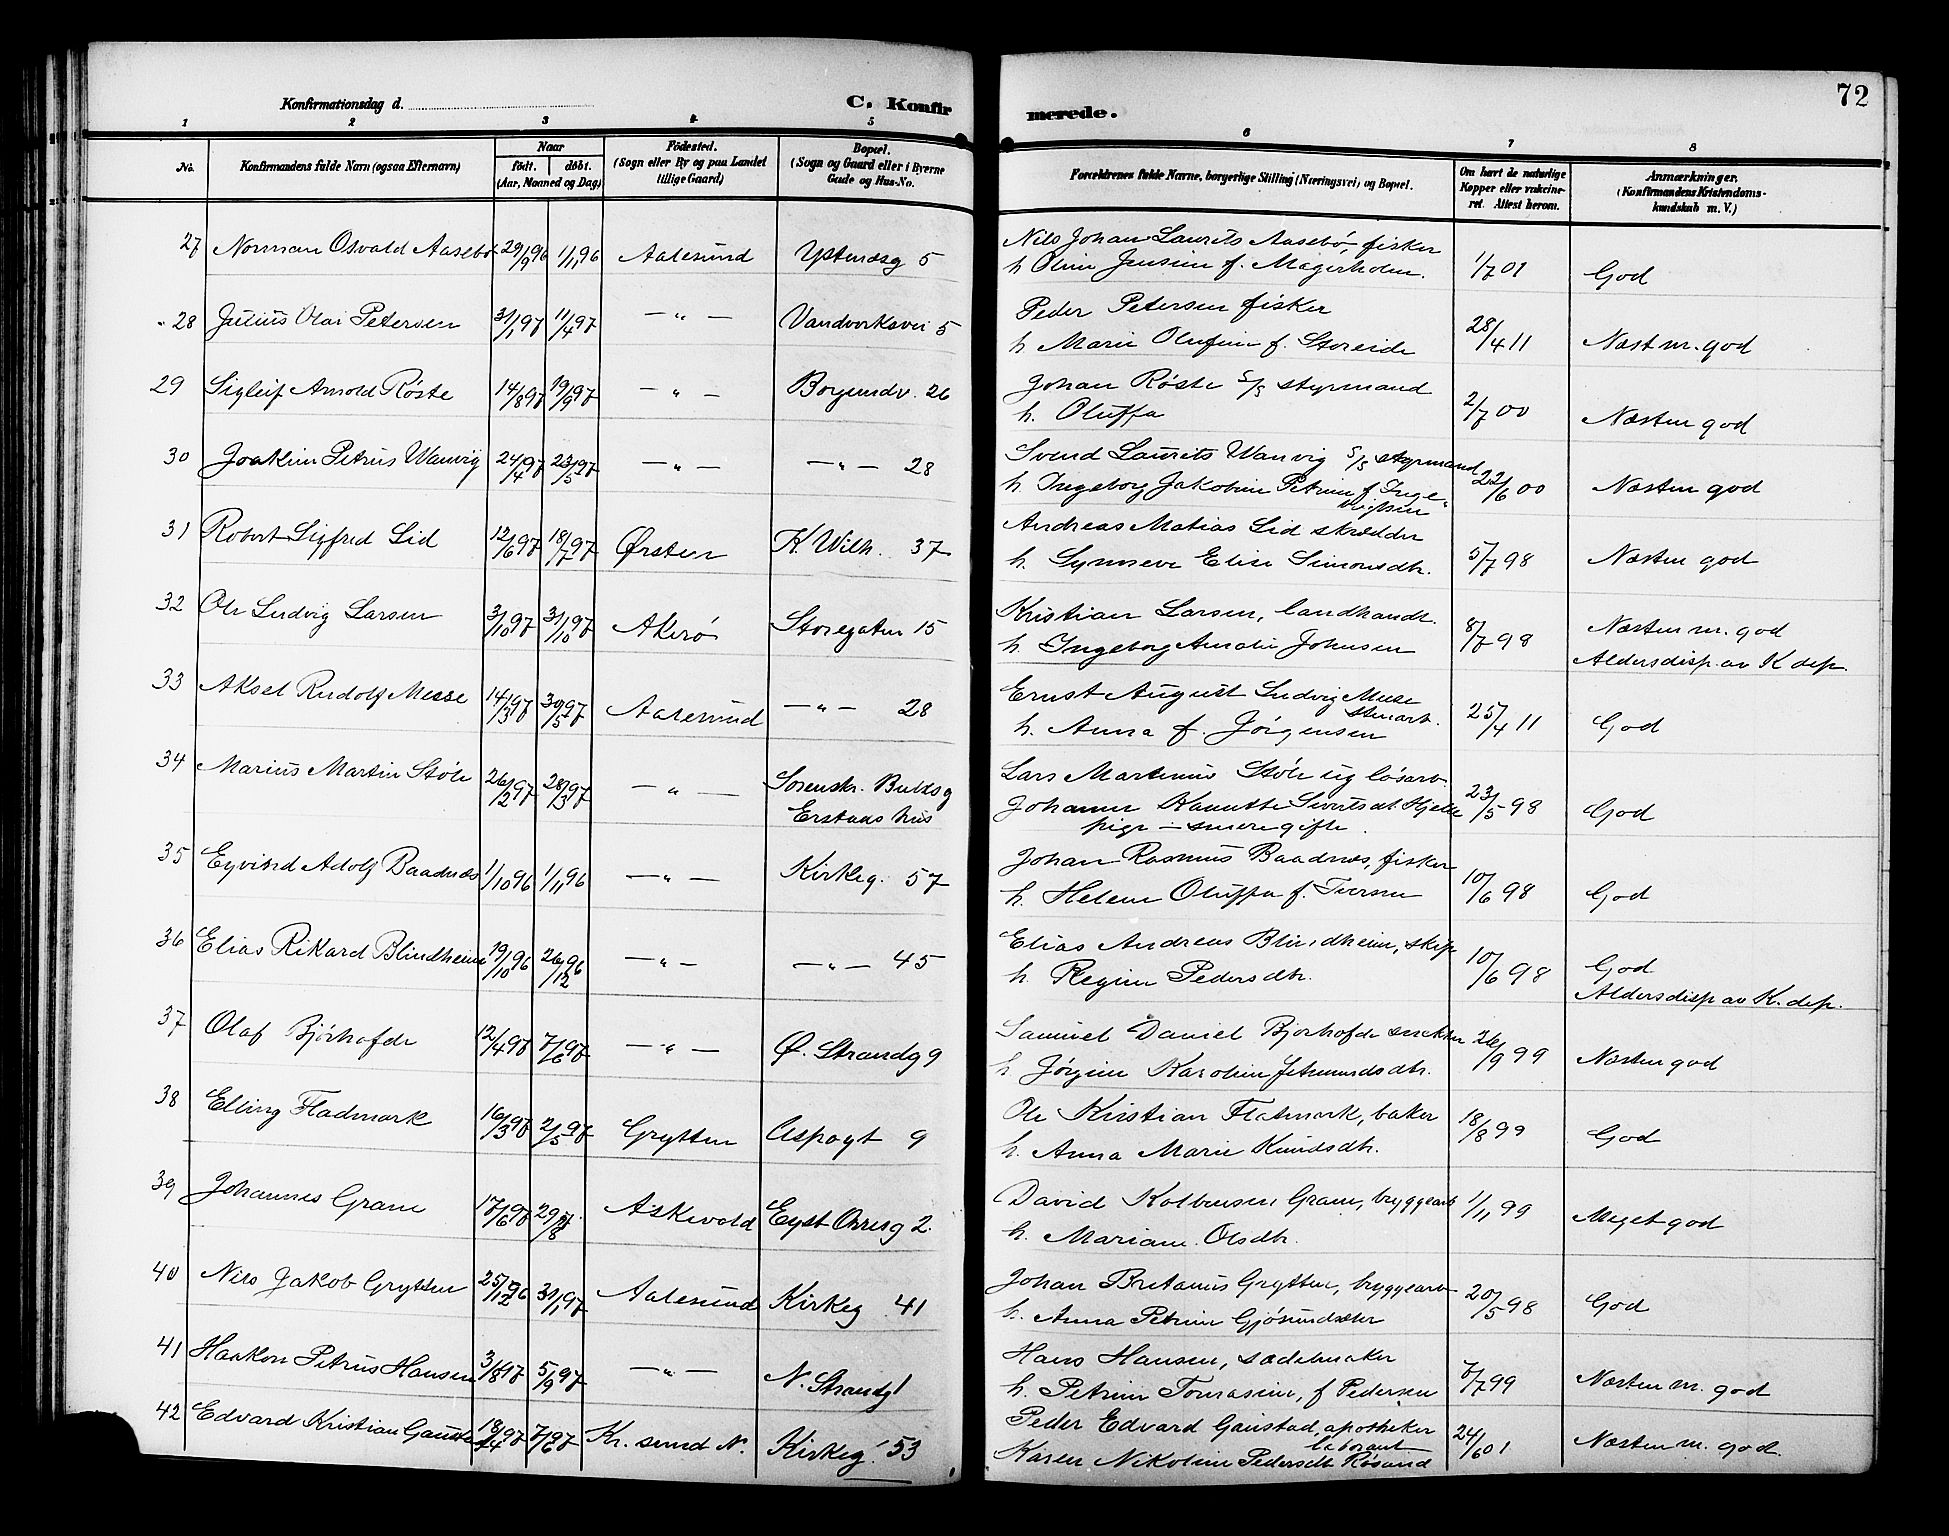 72
Konfirmationsdag d.
C. Konfir
merede.
1 2 3 4 5 6 7 8
No.
Konfirmandens fulde Navn (ogsaa Efternavn)
Naar
født. døbt.
(Aar, Maaned og Dag)
Fødested.
(Sogn eller By og paa Landet
tillige Gaard)
Bopæl.
(Sogn og Gaard eller i Byerne
Gade og Hus-No.
Forældrenes fulde Navne, borgerlige Stilling (Næringsvei) og Bopæl.
Om havt de naturlige
Kopper eller vaccine-
ret. Attest herom.
Anmærkninger.
(Konfirmandens Kristendoms-
kundskab m. V.)
27 Norman Osvald Aasebø 29/9 96 1/11 96 Aalesund Ystenesg 5 Nils Johan Laurits Aasebø, fisker
h Oline Jensine f. Magerholm. 1/7 01 God
28 Julius Olai Petersen 31/1 97 11/4 97 — " — Vandverksvei 5 Peder Petersen fisker
h Marie Olufine f. Storeide 28/4 11 Næst m. god
29 Sigleif Arnold Røste 14/8 97 19/9 97 — " — Borgundv. 26 Johan Røste S/S styrmand
h. Oluffa 2/7 00 Næsten god
30 Joakim Petrus Wanvig 24/4 97 23/5 97 — " — — " — 28 Svend Laurits Wanvig S/S styrmand
h. Ingeborg Jakobine Petrine f. Inge-
brigtsen 22/6 00 Næsten god
31 Robert Sigfred Lid 12/6 97 18/7 97 Ørsten K. Wilh. 37 Andreas Matias Lid skrædder
h. Synneve Elise Simonsdtr. 5/7 98 Næsten god
32 Ole Ludvig Larsen 3/10 97 31/10 97 Akerø Storegaten 15 Kristian Larsen, landhandl.
h. Ingeborg Amalie Johnsen 8/7 98 Næsten m. god
Aldersdisp. av K. dep.
33 Aksel Rudolf Messe 14/3 97 30/5 97 Aalesund — " — 28 Ernst August Ludvig Messe
stuart.
h. Anna f. Jørgensen 25/4 11 God
34 Marius Martin Støle 26/2 97 28/3 97 — " — Sorenskr. Bullsg
Erstads hus Lars Martinus Støle ug løsarb.
Johanne Kanutte Sivertsdt. Hjelle
pige — senere gifte. 23/5 98 God
35 Eyvind Adolf Baadnæs 1/10 96 1/11 96 — " — Kirkeg. 57 Johan Rasmus Baadnæs, fisker
h. Helene Oluffa f. Iversen 10/6 98 God
36 Elias Rikard Blindheim 19/10 96 26/12 96 — " — — " — 45 Elias Andreas Blindheim, skip.
h. Regine Pedersdtr. 10/6 98 God
Aldersdisp av K. dep.
37 Olaf Bjørhofde 12/4 97 7/6 97 — " — Ø. Strandg 9 Samuel Daniel Bjørhofde snekker
h Jørgine Karoline Jetmundsdtr. 26/9 99 Næsten god
38 Elling Fladmark 16/3 97 2/5 97 Grytten Aspøgt 9 Ole Kristian Flatmark, baker
h. Anna Marie Knudsdtr. 18/8 99 God
39 Johannes Grane 17/6 97 29/8 97 Askevold Eyst. Orresg 2. David Kolbensen Grane, bryggearb
h. Mariane Olsdtr. 1/11 99 Meget god
40 Nils Jakob Grytten 25/12 96 31/1 97 Aalesund Kirkeg 41 Johan Bretanus Grytten, bryggearb
h. Anna Petrine Gjøsundsæter 20/5 98 God
41 Haakon Petrus Hansen 3/8 97 5/9 97 — " — N. Strandg 1 Hans Hansen, sadelmaker
h. Petrine Tomasine, f Pedersen 7/7 99 Næsten m. god
42 Edvard Kristian Gaustad 18/4 97 7/6 97 Kr. sund N. Kirkeg. 53 Peder Edvard Gaustad, apotheker
laborant
Karen Nikoline Pedersdt Røsand 24/6 01 Næsten m. god.